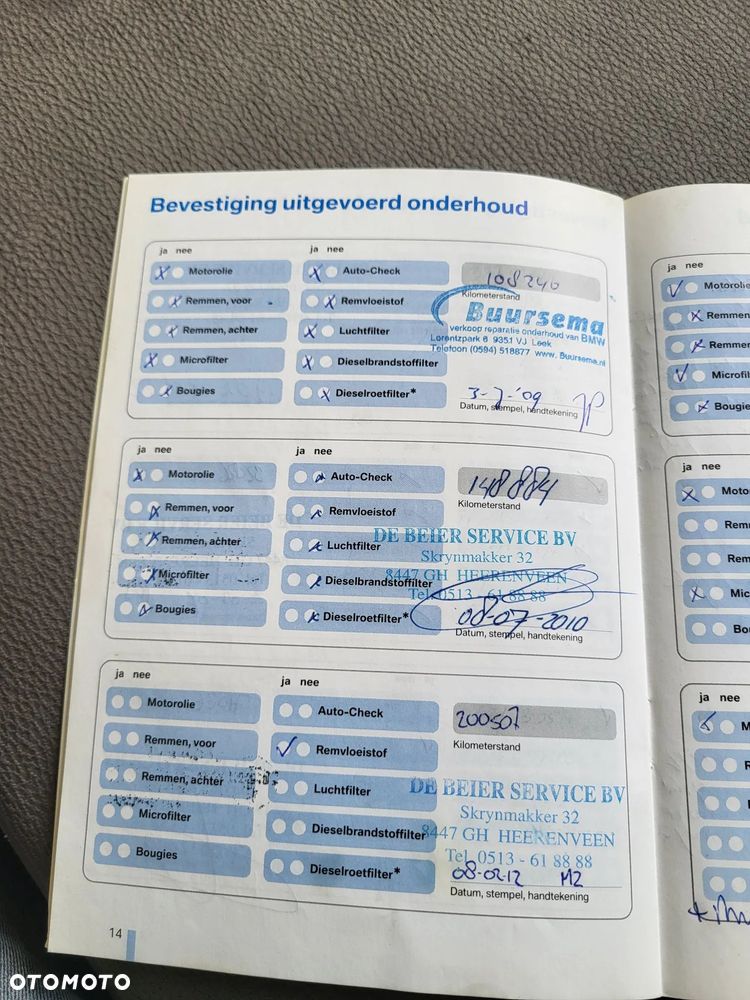 Bevestiging uitgevoerd onderhoud
ja nee
ja nee
Motorolie
Auto-Check
108240
Kilometerstand
Remmen, voor
Remvloeistof
Buursema
verkoop reparatie onderhoud van BMW
Lorentzpark 6 9351 VJ Leek
Telefoon (0594) 518877 www. Buursema.nl
Remmen, achter
Luchtfilter
Microfilter
Dieselbrandstoffilter
Bougies
Dieselroetfilter*
3-7-'09
Datum, stempel, handtekening
ja nee
ja nee
Motorolie
Auto-Check
148884
Kilometerstand
Remmen, voor
Remvloeistof
DE BEIER SERVICE BV
Skrynmakker 32
8447 GH HEERENVEEN
Tel. 0513 - 61 88 88
Remmen, achter
Luchtfilter
Microfilter
Dieselbrandstoffilter
Bougies
Dieselroetfilter*
08-07-2010
Datum, stempel, handtekening
ja nee
ja nee
Motorolie
Auto-Check
200507
Kilometerstand
Remmen, voor
Remvloeistof
Remmen, achter
Luchtfilter
DE BEIER SERVICE BV
Skrynmakker 32
8447 GH HEERENVEEN
Tel. 0513 - 61 88 88
Microfilter
Dieselbrandstoffilter
Bougies
Dieselroetfilter*
08-02-12 MZ
Datum, stempel, handtekening
14
ja nee
Motorolie
Remmen
Remmen
Microfil
Bougie
ja nee
Moto
Rem
Rem
Mic
Bo
ja nee
M
R
OTOMOTO